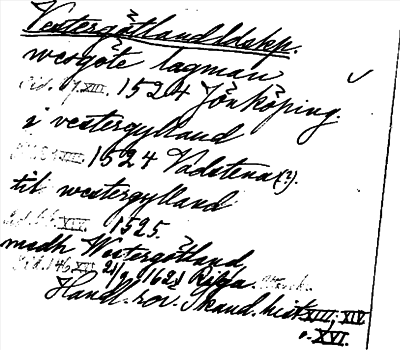 Vestergötland ldskp.
wesgöte lagman
XIII. 1524 Jönköping.
i vestergylland
XIII. 1524 Vadstena(?).
til westergylland
XIV. 1525.
medh Westergötland
146 XVI. 21/9 1621 Riga.
Handl. rör. Skand. hist XIII, XIV
o. XVI.